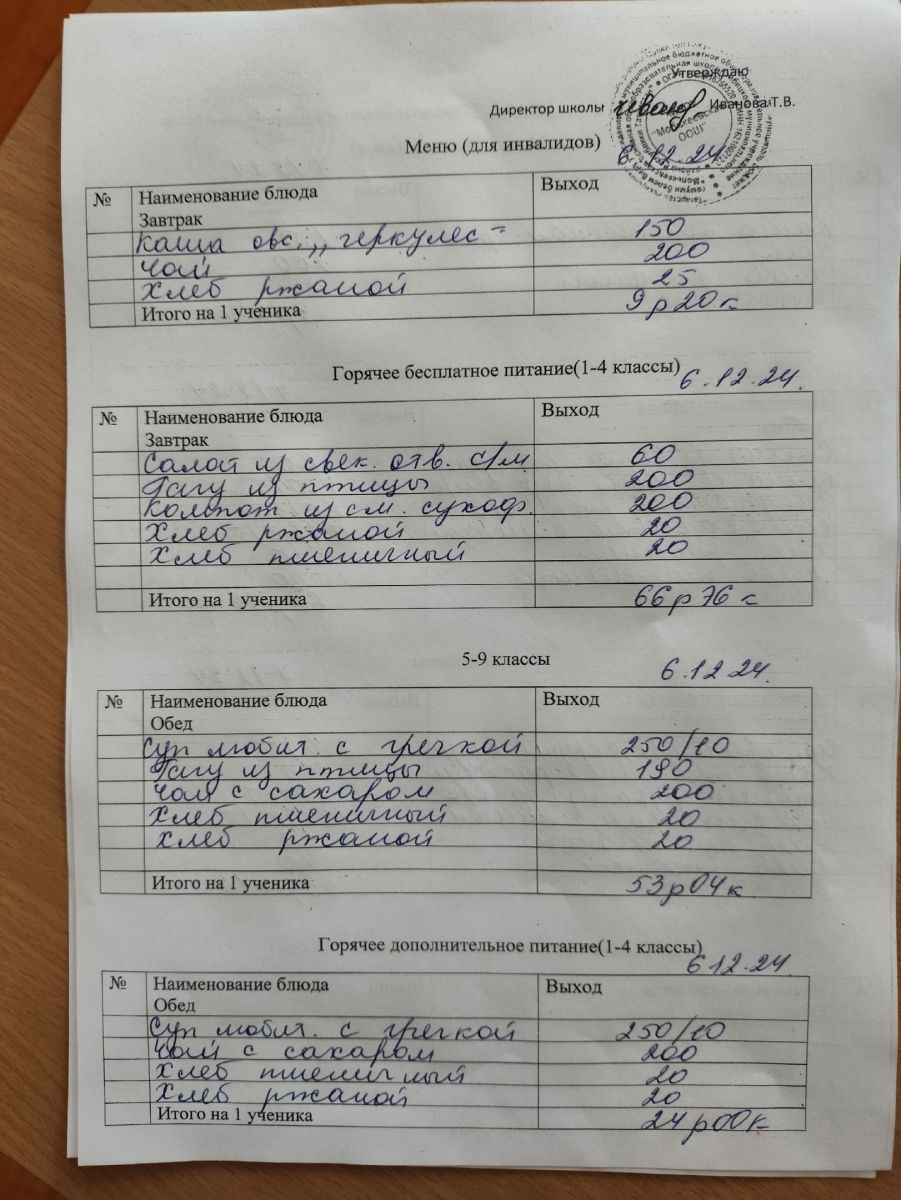 Утверждаю
Директор школы Иванова Т.В.
Меню (для инвалидов)
6.12.24
№ Наименование блюда Выход
Завтрак
Каша овс. „геркулес" 150
Чай 200
Хлеб ржаной 25
Итого на 1 ученика 9 р 20 к
Горячее бесплатное питание(1-4 классы) 6.12.24.
№ Наименование блюда Выход
Завтрак
Салат из свек. отв. с/м 60
Рагу из птицы 200
Компот из см. сухоф. 200
Хлеб ржаной 20
Хлеб пшеничный 20
Итого на 1 ученика 66 р 76 к
5-9 классы 6.12.24.
№ Наименование блюда Выход
Обед
Суп любит. с гречкой 250/10
Рагу из птицы 190
Чай с сахаром 200
Хлеб пшеничный 20
Хлеб ржаной 20
Итого на 1 ученика 53 р 04 к
Горячее дополнительное питание(1-4 классы) 6.12.24.
№ Наименование блюда Выход
Обед
Суп любит. с гречкой 250/10
Чай с сахаром 200
Хлеб пшеничный 20
Хлеб ржаной 20
Итого на 1 ученика 24 р 00 к.